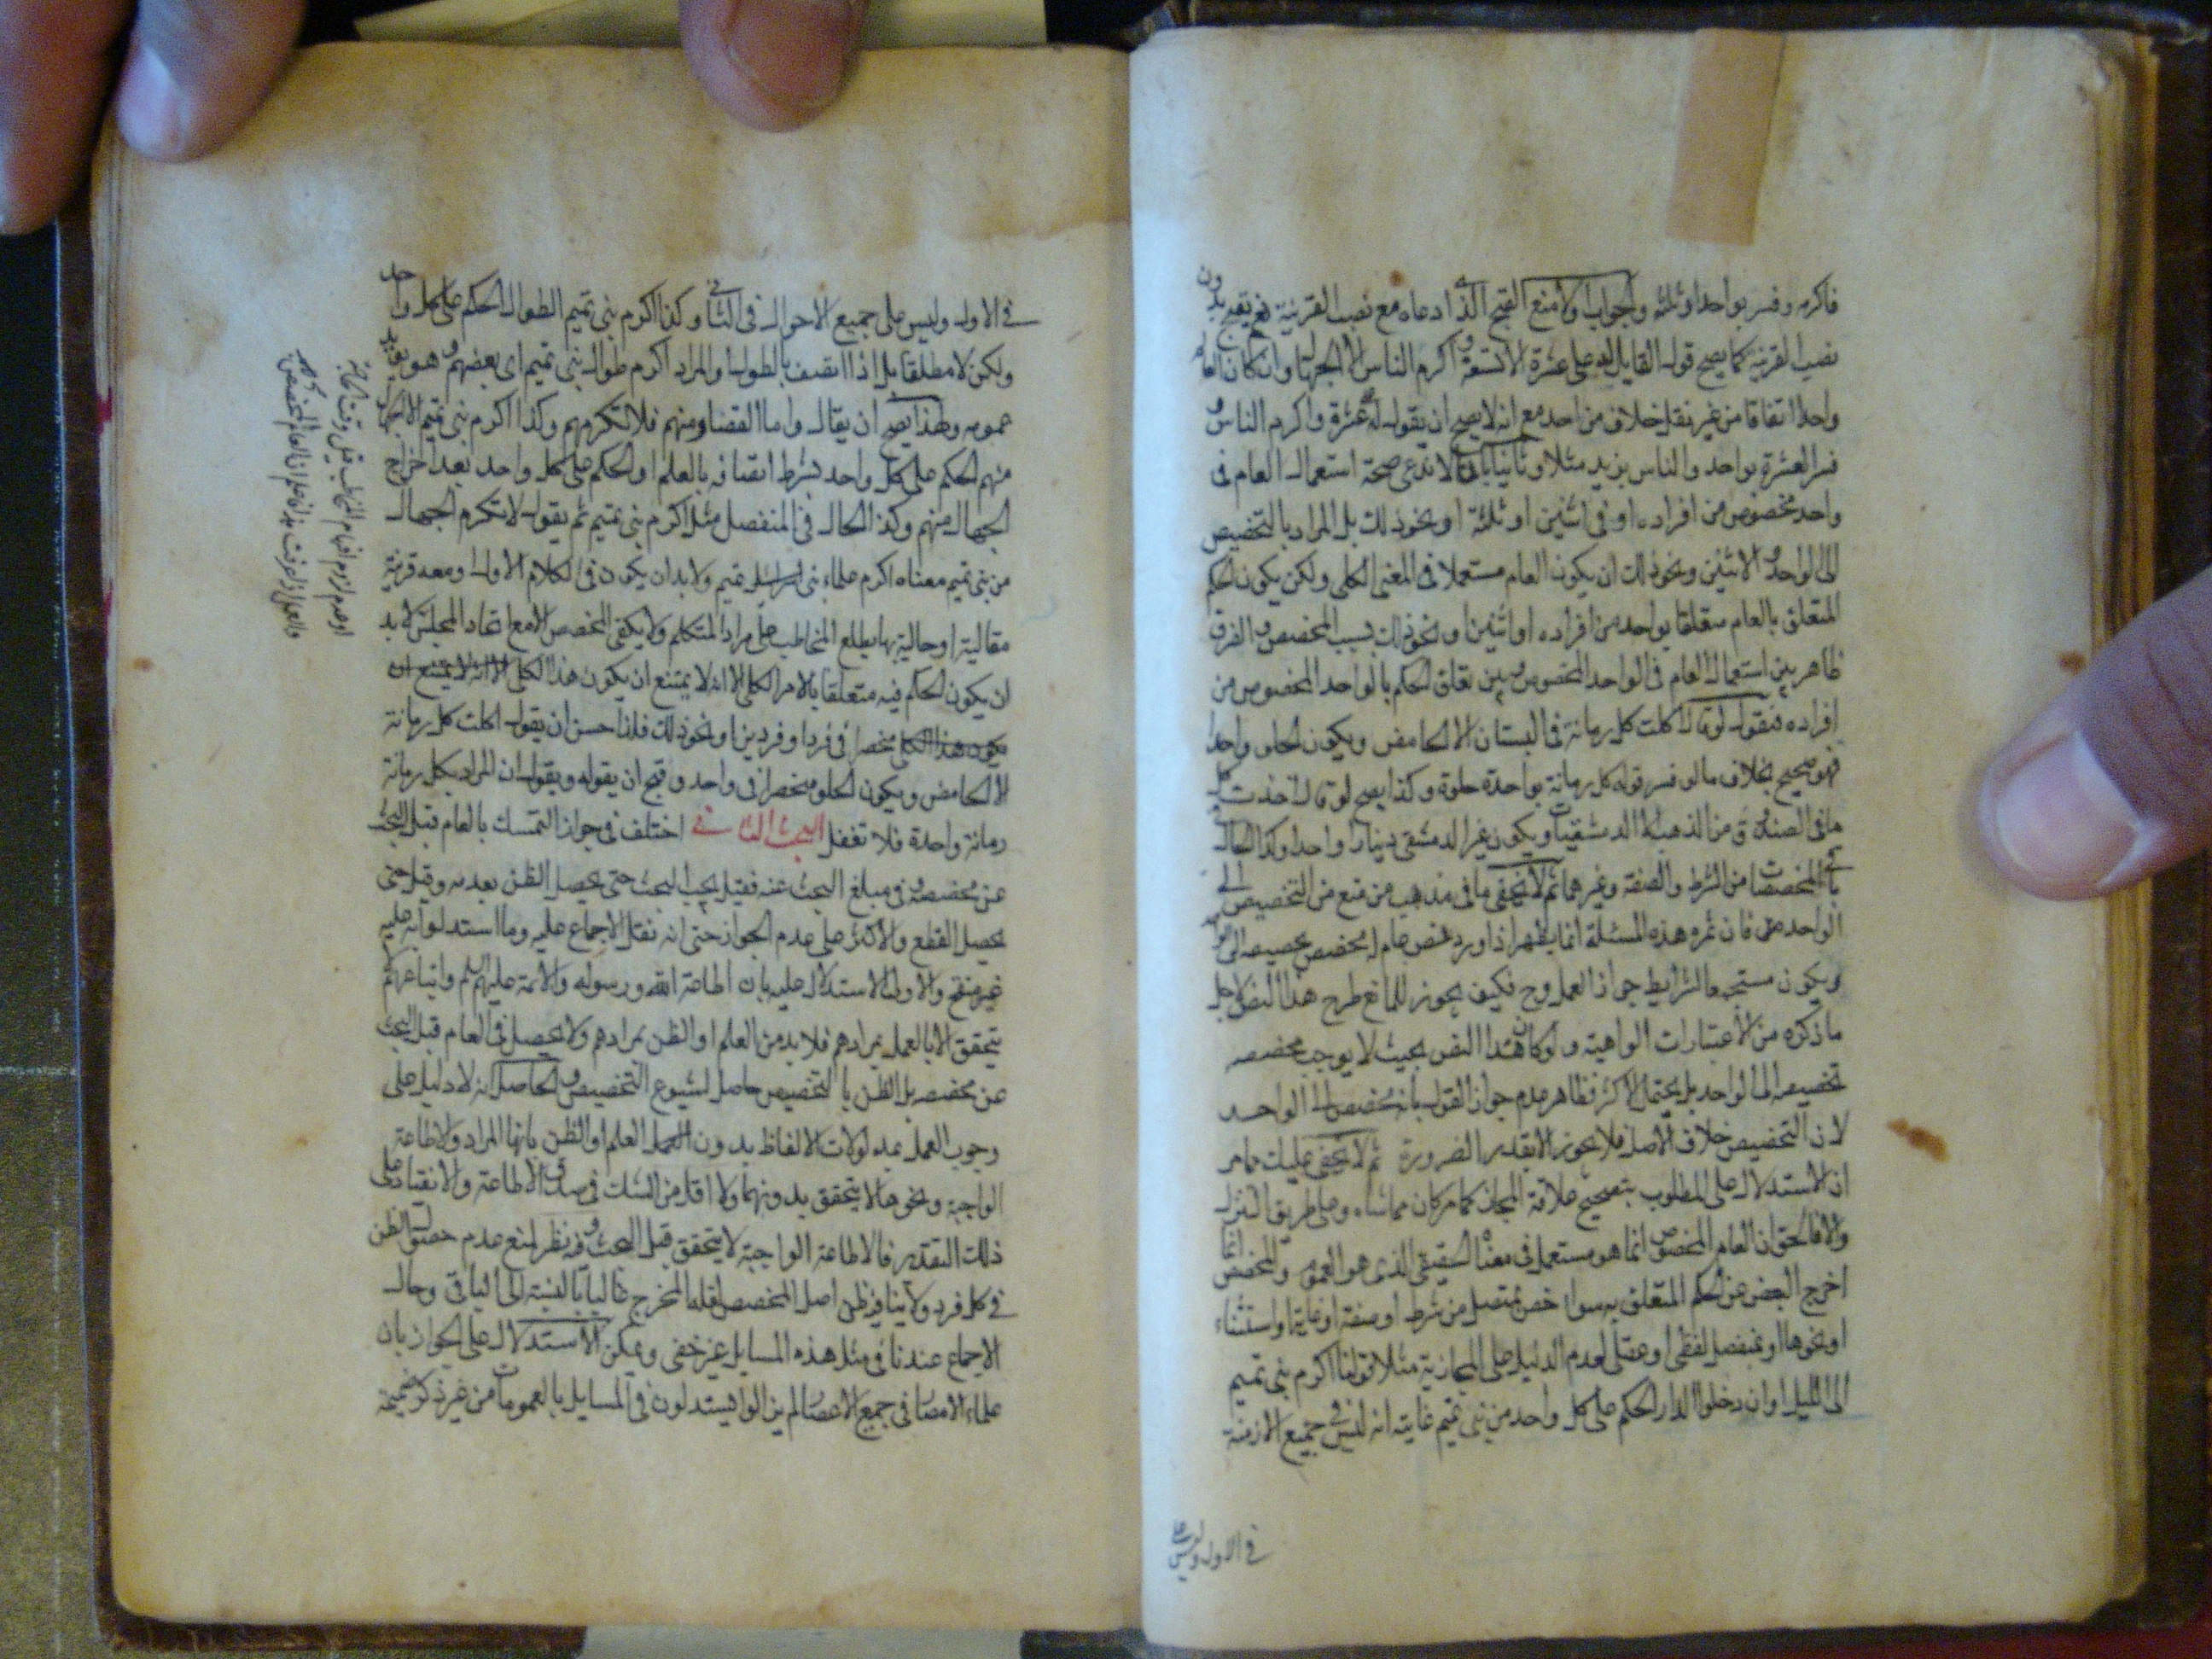 فاكرمه وفسر بواحد او ثلثة والجواب اولا منع القبح الذى ادعاه مع نصب القرينة نعم يقبح بدون
نصب القرينة كما يصح قول القايل له على عشرة الا تسعة و اكرم الناس الا الجهال وان كان العالم
واحدا اتفاقا من غير نقل خلاف من احد مع انه لا يصح ان يقول له عشرة واكرم الناس و
فسر العشرة بواحد والناس بزيد مثلا وثانيا بانا لا ندعى صحة استعمال العام فى
واحد مخصوص من افراده او فى اثنين او ثلثة او نحو ذلك بل المراد بالتخصيص
الى الواحد و الاثنين ونحو ذلك ان يكون العام مستعملا فى المعنى الكلى ولكن يكون الحكم
المتعلق بالعام متعلقا بواحد من افراده او اثنين او نحو ذلك بسبب المخصص و الفرق
ظاهر بين استعمال العام فى الواحد المخصوص وبين تعلق الحكم بالواحد المخصوص من
افراده فنقول لو قال اكلت كل رمانة فى البستان الا الحامض ويكون الحلو واحدا
فهو صحيح بخلاف ما لو فسر قوله كل رمانة بواحدة حلوة وكذا يصح لو قال اخذت كل
ما فى الصندوق من الذهب الا الدمشقيات ويكون غير الدمشقى دينارا واحدا وكذا الحال
باقى المخصصات من الشرط والصفة وغيرهما ثم لا يخفى ما فى مذهب من منع من التخصيص الى
الواحد فان ثمره هذه المسئلة انما يظهر اذا ورد نص عام له مخصص تخصيصه الى الواحد
ويكون مستجمعا لشرايط جواز العمل وح فكيف يجوز للمانع طرح هذا النص لاجل
ما ذكره من الاعتبارات الواهية ولو كان هذا النص بحيث لا يوجب مخصصه
تخصيصه الى الواحد بل يحتمل الاكثر فظاهر عدم جواز القول بانه مخصص الى الواحد
لان التخصيص خلاف الاصل فلا يجوز الا بقدر الضرورة ثم لا يخفى عليك مما مر
ان الاستدلال على المطلوب بتصحيح علاقة المجاز كما مر كان مماشاه وعلى طريق التنزل
والا فالحق ان العام المخصوص انما هو مستعمل فى معناه الحقيقى الذى هو العموم والمخصص انما
اخرج البعض عن الحكم المتعلق به سواء خص بمتصل من شرط او صفة او غاية او استثناء
او نحوها او بمنفصل لفظى او عقلى لعدم الدليل على المجازية مثلا قولنا اكرم بنى تميم
الى الليل او ان دخلوا الدار الحكم على كل واحد من بنى تميم غايته انه ليس فى جميع الازمنة
فى الاول وليس على
فى الاول وليس على جميع الاحوال فى الثانى وكذا اكرم بنى تميم الطوال الحكم على كل واحد
ولكن لا مطلقا بل اذا اتصف بالطول او المراد اكرم طوال بنى تميم اى بعضهم و هو يفيد
عمومه ولهذا يصح ان يقال واما القصار منهم فلا تكرمهم وكذا اكرم بنى تميم الا الجهال
منهم الحكم على كل واحد بشرط اتصافه بالعلم او الحكم على كل واحد بعد اخراج
الجهال منهم وكذا الحال فى المنفصل مثل اكرم بنى تميم ثم يقول لا تكرم الجهال
من بنى تميم معناه اكرم علماء بنى تميم ولا بد ان يكون فى الكلام الاول ومعه قرينة
مقالية او حالية بها يطلع المخاطب على مراد المتكلم ولا يكفى المخصص الا مع اتحاد المجلس لا بد
ان يكون الحكم فيه متعلقا بالامر الكلى الا انه لا يمتنع ان يكون هذا الكلى الا انه لا يمتنع ان
يكون هذا الكلى منحصرا فى فرد او فردين او نحو ذلك فلذا حسن ان يقول اكلت كل رمانة
الا الحامض ويكون الحلو منحصرا فى واحد وقبح ان يقوله ويقول ان المراد بكل رمانة
رمانة واحدة فلا تغفل البحث الثانى اختلف فى جواز التمسك بالعام قبل البحث
عن مخصصه و فى مبلغ البحث عنه فقيل يجب البحث حتى يحصل الظن بعدمه وقيل حتى
يحصل القطع والاكثر على عدم الجواز حتى انه نقل الاجماع عليه وما استدلوا به عليه
غير منقح والاولى الاستدلال عليه بان اطاعة الله ورسوله والائمة عليهم السلم واتباعهم
يتحقق الا بالعمل بمرادهم فلا بد من العلم او الظن بمرادهم ولا يحصل فى العام قبل البحث
عن مخصصه بل الظن بالتخصيص حاصل لشيوع التخصيص و الحاصل انه لا دليل على
وجوب العمل بمدلولات الالفاظ بدون العلم او الظن بانها المراد والاطاعة
الواجبة ونحوها لا يتحقق بدونهما ولا اقل من الشك فى صدق الاطاعة والانقياد على
ذلك التقدير فالاطاعة الواجبة لا يتحقق قبل البحث و فيه نظر لمنع عدم حصول الظن
فى كل فرد ولا ينافيه ظن اصل المخصص لقلة المخرج غالبا بالنسبة الى الباقى وحال
الاجماع عندنا فى مثل هذه المسايل غير خفى ويمكن الاستدلال على الجواز بان
علماء الامصار فى جميع الاعصار لم يزالوا يستدلون فى المسايل بالعمومات من غير ذكر ضميمة